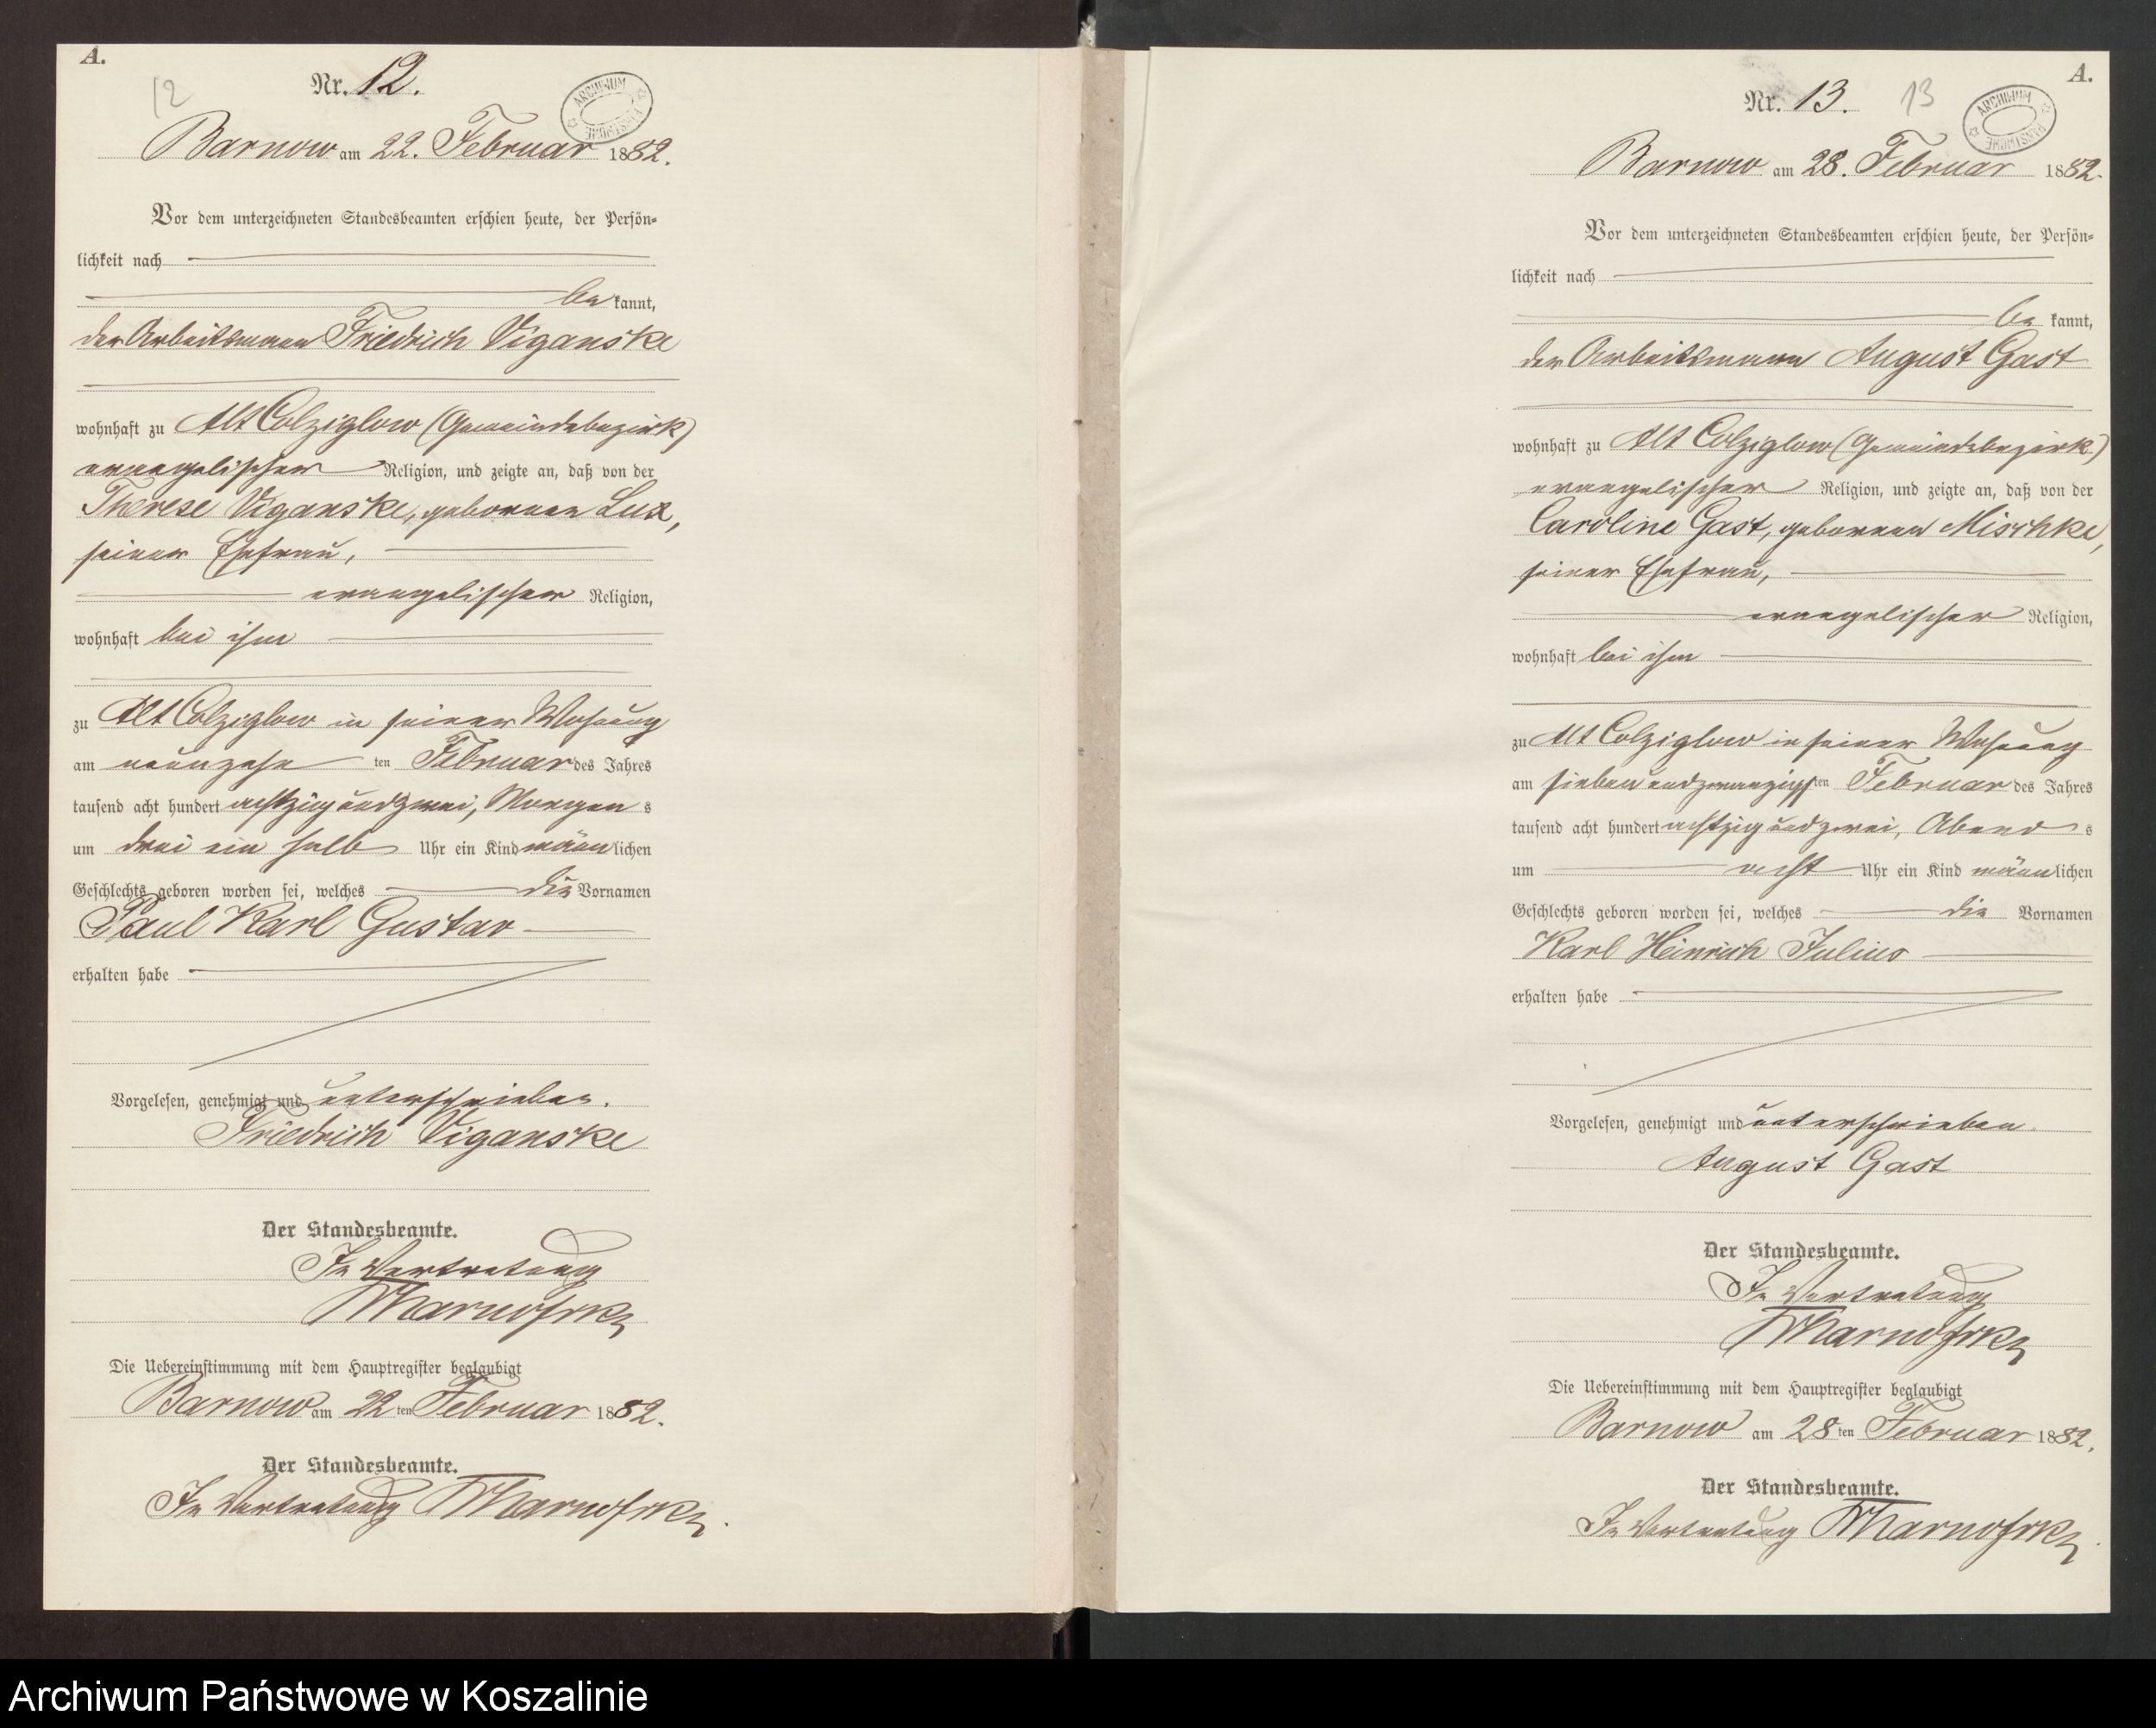 A.
12
Nr. 12.
ARCHIWUM PAŃSTWOWE
Barnow am 22. Februar 1882.
Vor dem unterzeichneten Standesbeamten erschien heute, der Persön=
lichkeit nach
be kannt,
der Arbeitsmann Friedrich Viganske
wohnhaft zu Alt Colziglow (Gemeindebezirk)
evangelischer Religion, und zeigte an, daß von der
Therese Viganske, geborenen Lux,
seiner Ehefrau,
evangelischer Religion,
wohnhaft bei ihm
zu Alt Colziglow in seiner Wohnung
am neunzehn ten Februar des Jahres
tausend acht hundert achtzig und zwei, Morgen s
um drei ein halb Uhr ein Kind männ lichen
Geschlechts geboren worden sei, welches die Vornamen
Paul Karl Gustav
erhalten habe
Vorgelesen, genehmigt und unterschrieben.
Friedrich Viganske
Der Standesbeamte.
In Vertretung
Die Uebereinstimmung mit dem Hauptregister beglaubigt
Barnow am 22 ten Februar 1882.
Der Standesbeamte.
In Vertretung
A.
Nr. 13. 13
ARCHIWUM PAŃSTWOWE
Barnow am 28. Februar 1882.
Vor dem unterzeichneten Standesbeamten erschien heute, der Persön=
lichkeit nach
be kannt,
der Arbeitsmann August Gast
wohnhaft zu Alt Colziglow (Gemeindebezirk)
evangelischer Religion, und zeigte an, daß von der
Caroline Gast, geborenen Mischke,
seiner Ehefrau,
evangelischer Religion,
wohnhaft bei ihm
zu Alt Colziglow in seiner Wohnung
am sieben und zwanzigsten Februar des Jahres
tausend acht hundert achtzig und zwei, Abend s
um acht Uhr ein Kind männ lichen
Geschlechts geboren worden sei, welches die Vornamen
Karl Heinrich Julius
erhalten habe
Vorgelesen, genehmigt und unterschrieben.
August Gast
Der Standesbeamte.
In Vertretung
Die Uebereinstimmung mit dem Hauptregister beglaubigt
Barnow am 28 ten Februar 1882.
Der Standesbeamte.
In Vertretung
Archiwum Państwowe w Koszalinie